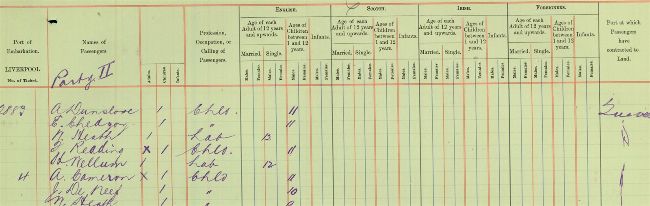 ENGLISH. SCOTCH. IRISH. FOREIGNERS.
Port of Embarkation. LIVERPOOL. No. of Ticket.
Names of Passengers.
Adults. Children. Infants.
Profession, Occupation, or Calling of Passengers.
Age of each Adult of 12 years and upwards. Children between 1 and 12 years. Infants.
Married. Single.
Males. Females.
Port at which Passengers have contracted to Land.
Party II
A. Dunslove 1 Chld. 11
E. Chedzoy 1 " 11
N. Heath 1 Lab 13
Reading x 1 Chld. 11
H. Nellum 1 Lab 12
4 A. Cameron x 1 Chld 11
J. De Neef 1 " 10
N. Heath 1 "